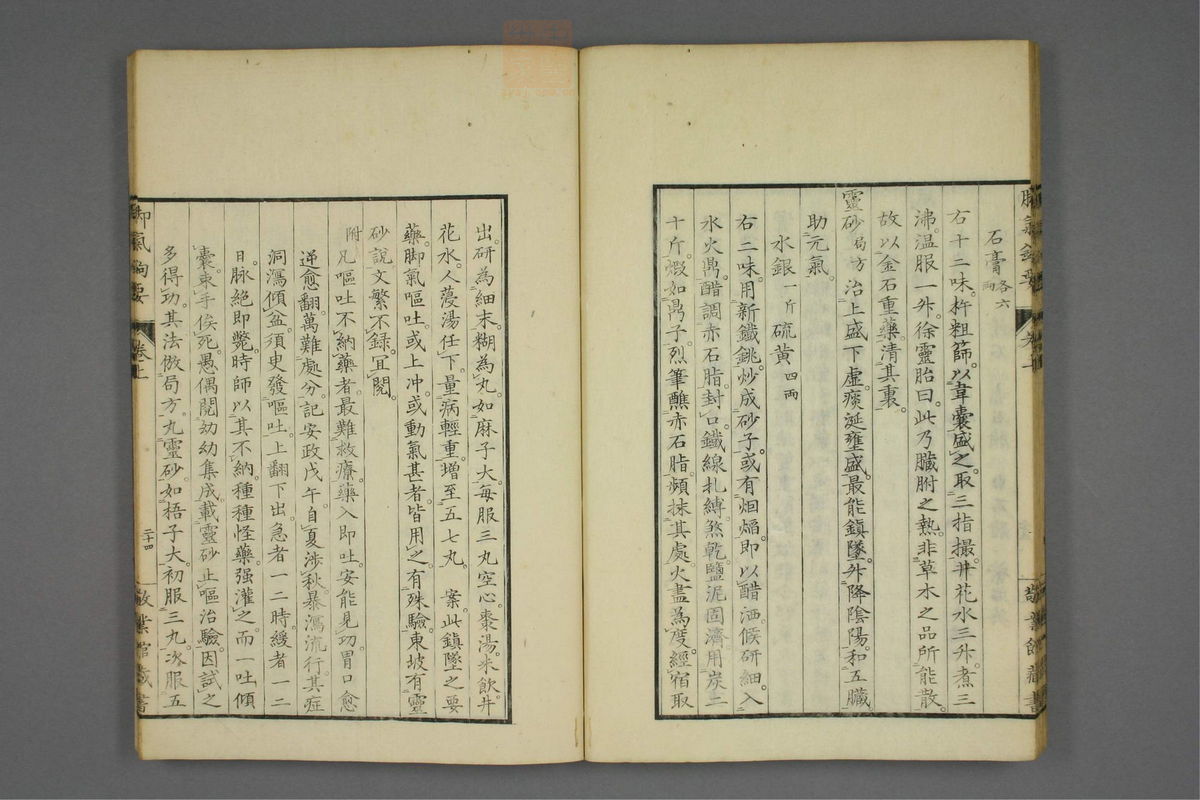 石膏各六兩
右十二味。杵粗篩。以韋囊盛之。取三指撮。井花水三升。煮三
沸。溫服一升。徐靈胎曰。此乃臟腑之熱。非草木之品所能散。
故以金石重藥。清其裏。
靈砂局方治上盛下虛。痰涎壅盛。最能鎮墜。升降陰陽。和五臟
助元氣。
水銀一斤硫黃四兩
右二味。用新鐵銚。炒成砂子。或有烟熖。即以醋洒。候研細。入
水火鼎。醋調赤石脂。封口。鐵線扎縛。煞乾。鹽泥固濟。用炭二
十斤。煆如鼎子。烈筆蘸赤石脂。頻抹其處。火盡為度。經宿取
出。研為細末。糊為丸。如麻子大。每服三丸。空心。棗湯。米飲。井
花水。人薓湯任下。量病輕重。增至五七丸。 案。此鎮墜之要
藥。脚氣嘔吐。或上冲。或動氣甚者。皆用之。有殊驗。東坡有靈
砂說。文繁不錄。冝閱。
附凡嘔吐不納藥者。最難救療。藥入即吐。安能見功。胃口愈
逆愈翻。萬難處分。記安政戊午。自夏涉秋。暴瀉流行。其症
洞瀉傾盆。須臾發嘔吐。上翻下出。急者一二時。緩者一二
日。脉絕即斃。時師以其不納。種種怪藥。强灌之。而一吐傾
囊。束手俟死。愚偶閱幼幼集成。載靈砂止嘔治驗。因試之
多得功。其法倣局方。丸靈砂。如梧子大。初服三丸。次服五
脚氣鉤要
卷上
二十四
敬業館藏書